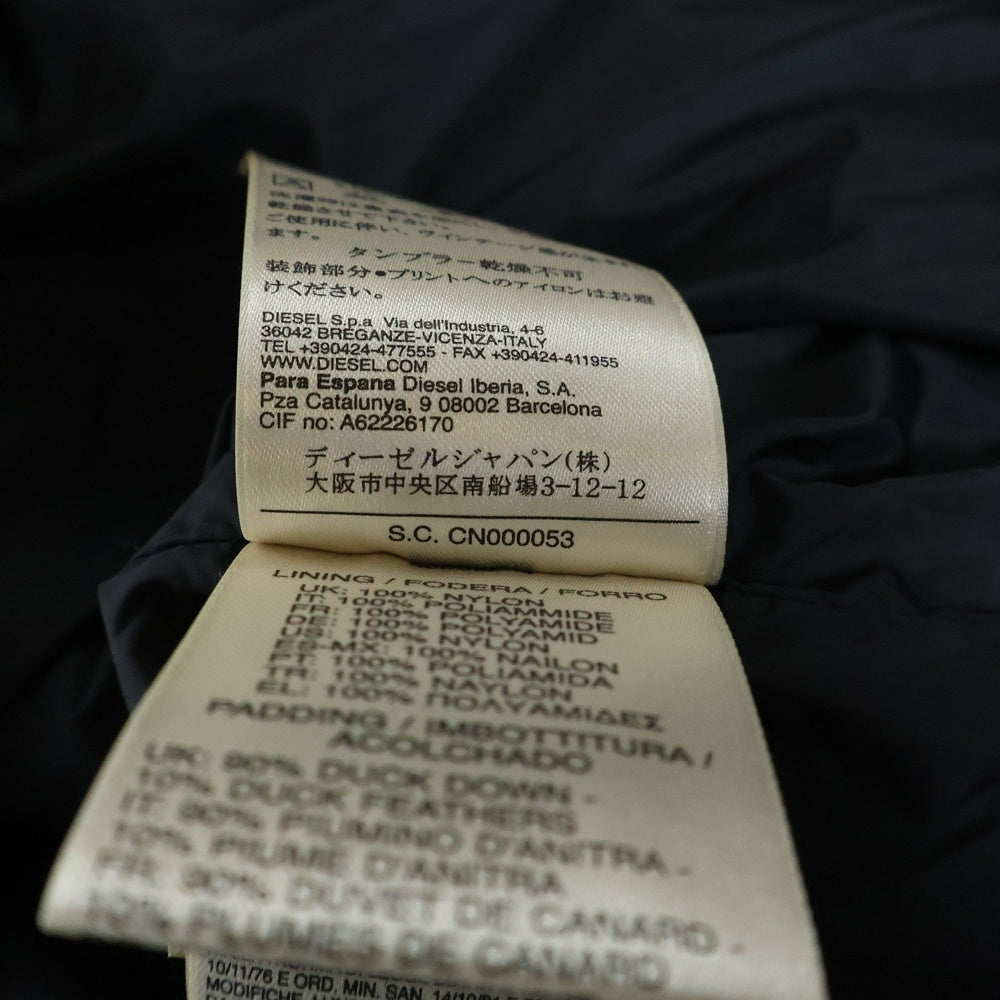 乾燥させて下さい。
ご使用に伴い、ヴィンテージ感が
ます。
タンブラー乾燥不可
装飾部分•プリントへのアイロンはお避
けください。
DIESEL S.p.a Via dell'Industria, 4-6
36042 BREGANZE-VICENZA-ITALY
TEL +390424-477555 - FAX +390424-411955
WWW.DIESEL.COM
Para Espana Diesel Iberia, S.A.
Pza Catalunya, 9 08002 Barcelona
CIF no: A62226170
ディーゼルジャパン(株)
大阪市中央区南船場3-12-12
S.C. CN000053
LINING / FODERA / FORRO
UK: 100% NYLON
IT: 100% POLIAMMIDE
FR: 100% POLYAMIDE
DE: 100% POLYAMID
US: 100% NYLON
ES-MX: 100% NAILON
PT: 100% POLIAMIDA
TR: 100% NAYLON
EL: 100% ΠΟΛΥΑΜΙΔΕΣ
PADDING / IMBOTTITURA /
ACOLCHADO
UK: 90% DUCK DOWN -
10% DUCK FEATHERS
IT: 90% PIUMINO D'ANITRA -
10% PIUME D'ANITRA
FR: 90% DUVET DE CANARD -
10% PLUMES DE CANARD
10/11/76 E ORD. MIN. SAN.